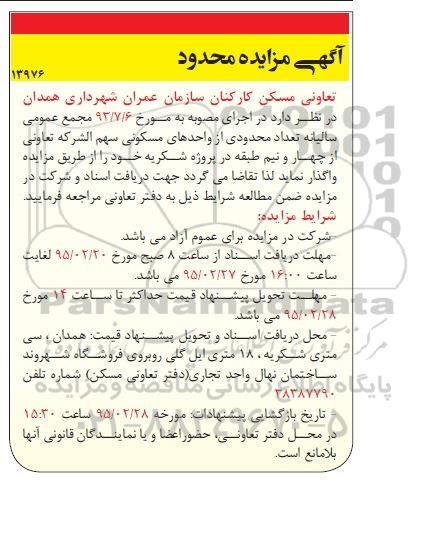 آگهی مزایده محدود
۱۳۹۷۶
تعاونی مسکن کارکنان سازمان عمران شهرداری همدان
در نظر دارد در اجرای مصوبه به مورخ ۹۳/۷/۶ مجمع عمومی
سالیانه تعداد محدودی از واحدهای مسکونی سهم الشرکه تعاونی
از چهار و نیم طبقه در پروژه شکریه خود را از طریق مزایده
واگذار نماید لذا تقاضا می گردد جهت دریافت اسناد و شرکت در
مزایده ضمن مطالعه شرایط ذیل به دفتر تعاونی مراجعه فرمایید.
شرایط مزایده:
-شرکت در مزایده برای عموم آزاد می باشد.
-مهلت دریافت اسناد از ساعت ۸ صبح مورخ ۹۵/۰۲/۲۰ لغایت
ساعت ۱۶:۰۰ مورخ ۹۵/۰۲/۲۷ می باشد.
- مهلت تحویل پیشنهاد قیمت حداکثر تا ساعت ۱۴ مورخ
۹۵/۰۲/۲۸ می باشد.
- محل دریافت اسناد و تحویل پیشنهاد قیمت: همدان ، سی
متری شکریه ، ۱۸ متری ایل گلی روبروی فروشگاه شهروند
ساختمان نهال واحد تجاری(دفتر تعاونی مسکن) شماره تلفن
۳۸۳۸۷۷۹۰
- تاریخ بازگشایی پیشنهادات: مورخه ۹۵/۰۲/۲۸ ساعت ۱۵:۳۰
در محل دفتر تعاونی، حضوراعضا و یا نمایندگان قانونی آنها
بلامانع است.
ParsNamadData
پایگاه اطلاع رسانی مناقصه و مزایده
۰۲۱-۸۸۳۴۹۶۷۰-۵